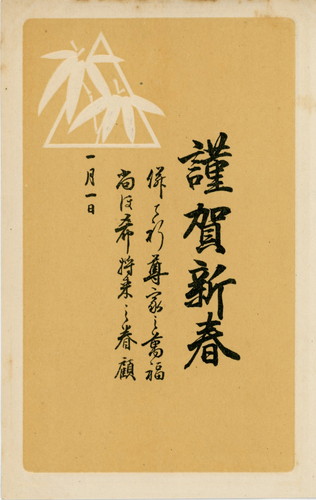 謹賀新春
併て祈尊家之萬福
尚ほ希将来之眷顧
一月一日